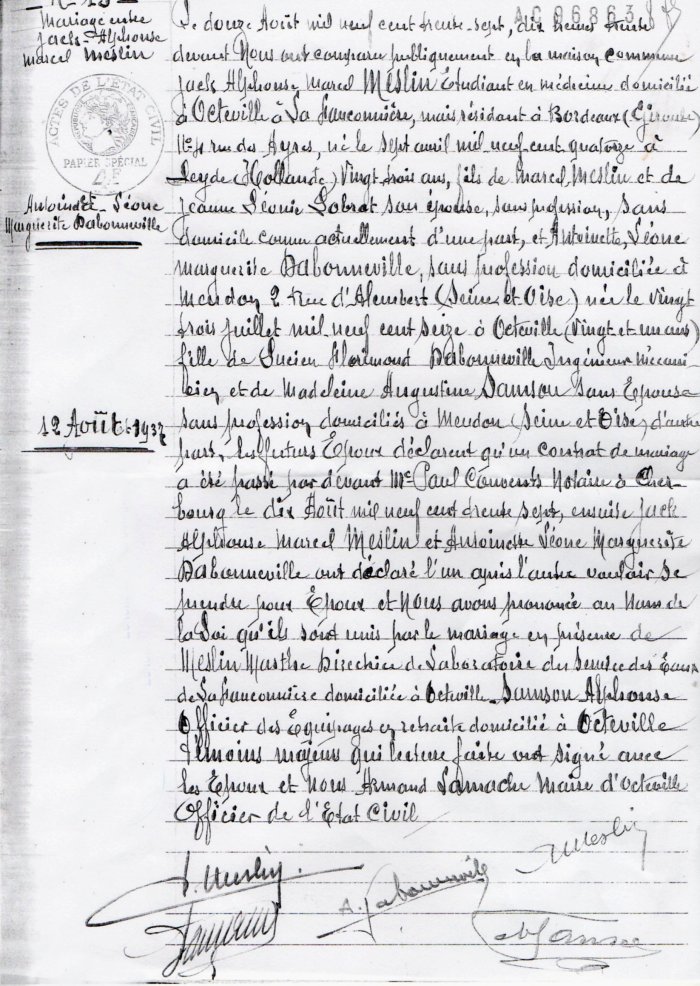 Mariage entre
Jack Alphonse
Marcel Meslin
ACTES DE L'ETAT CIVIL
PAPIER SPÉCIAL
Antoinette Léone
Marguerite Dabonneville
12 Août 1937
AC 06863
Le douze Août mil neuf cent trente-sept, dix heures trente
devant Nous ont comparu publiquement en la maison commune
Jack Alphonse Marcel Meslin Etudiant en médecine domicilié
à Octeville à La Fauconnière, mais résidant à Bordeaux (Gironde)
11 rue des Ayres, né le sept avril mil neuf cent quatorze à
Leyde (Hollande) Vingt trois ans, fils de Marcel Meslin et de
Jeanne Léonie Lobrot son épouse, sans profession, sans
domicile connu actuellement d'une part, et Antoinette, Léone
Marguerite Dabonneville, sans profession domiciliée à
Meudon 2 Rue d'Alembert (Seine et Oise) née le vingt
trois juillet mil neuf cent seize à Octeville (Vingt et un ans)
fille de Lucien Florimond Dabonneville Ingénieur Mécani-
cien et de Madeleine Augustine Samson sans Epouse
sans profession domiciliés à Meudon (Seine et Oise) d'autre
part, les futurs Epoux déclarent qu'un contrat de mariage
a été passé par devant Me Paul Notaire à Cher-
bourg le dix Août mil neuf cent trente sept, ensuite Jack
Alphonse Marcel Meslin et Antoinette Léone Marguerite
Dabonneville ont déclaré l'un après l'autre vouloir se
prendre pour Epoux et Nous avons prononcé au Nom de
la Loi qu'ils sont unis par le mariage en présence de
Meslin Marthe Directrice de Laboratoire du Service des Eaux
de La Fauconnière domiciliée à Octeville Samson Alphonse
Officier des Equipages en retraite domicilié à Octeville
témoins majeurs qui lecture faite ont signé avec
les Epoux et Nous Armand Lamache Maire d'Octeville
Officier de l'Etat Civil
J. Meslin
A. Dabonneville
Meslin